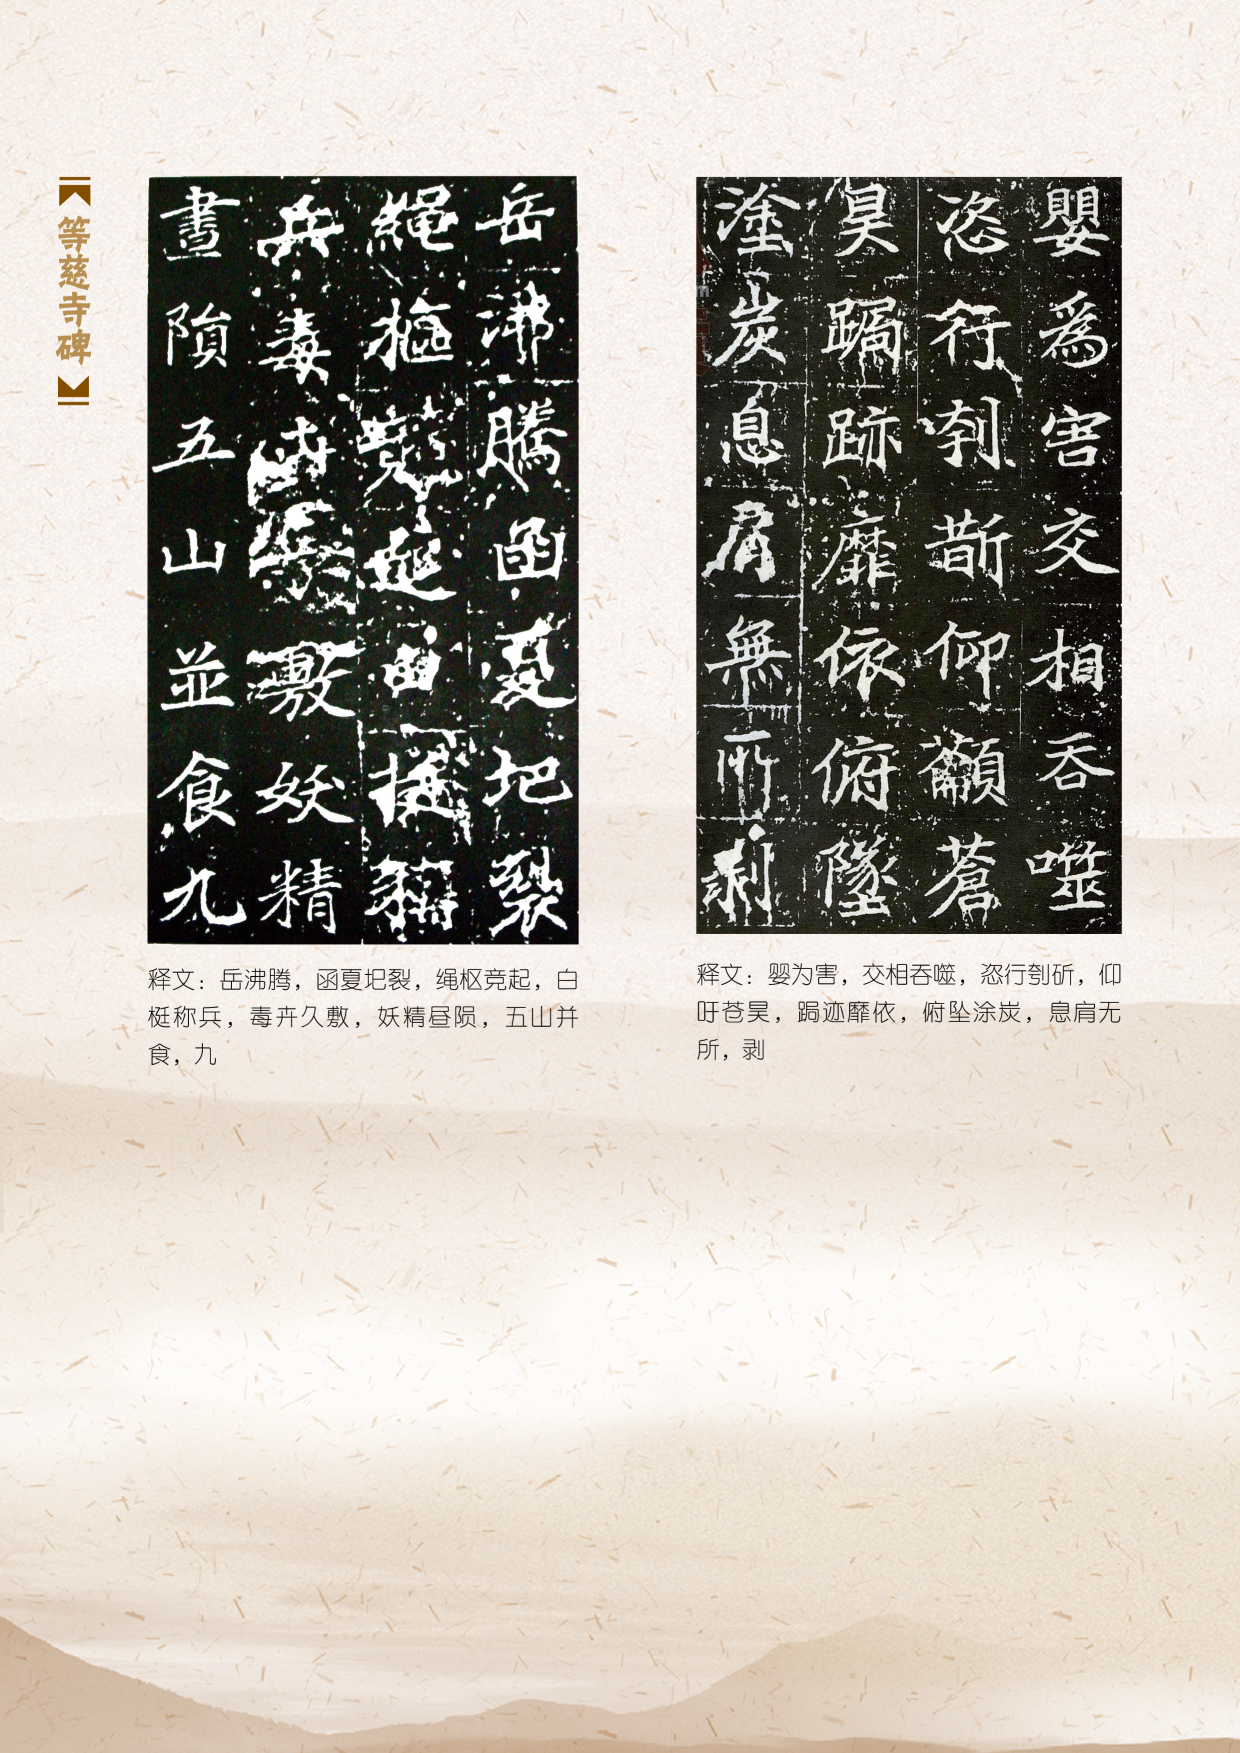 等慈寺碑
岳沸騰函夏圮裂
繩樞競起白梃稱
兵毒卉敷妖精
晝隕五山並食九
释文：岳沸腾，函夏圯裂，绳枢竞起，白
梃称兵，毒卉久敷，妖精昼陨，五山并
食，九
嬰為害交相吞噬
恣行刳斮仰籲蒼
昊跼跡靡依俯墜
塗炭息肩無所剥
释文：婴为害，交相吞噬，恣行刳斫，仰
吁苍昊，跼迹靡依，俯坠涂炭，息肩无
所，剥